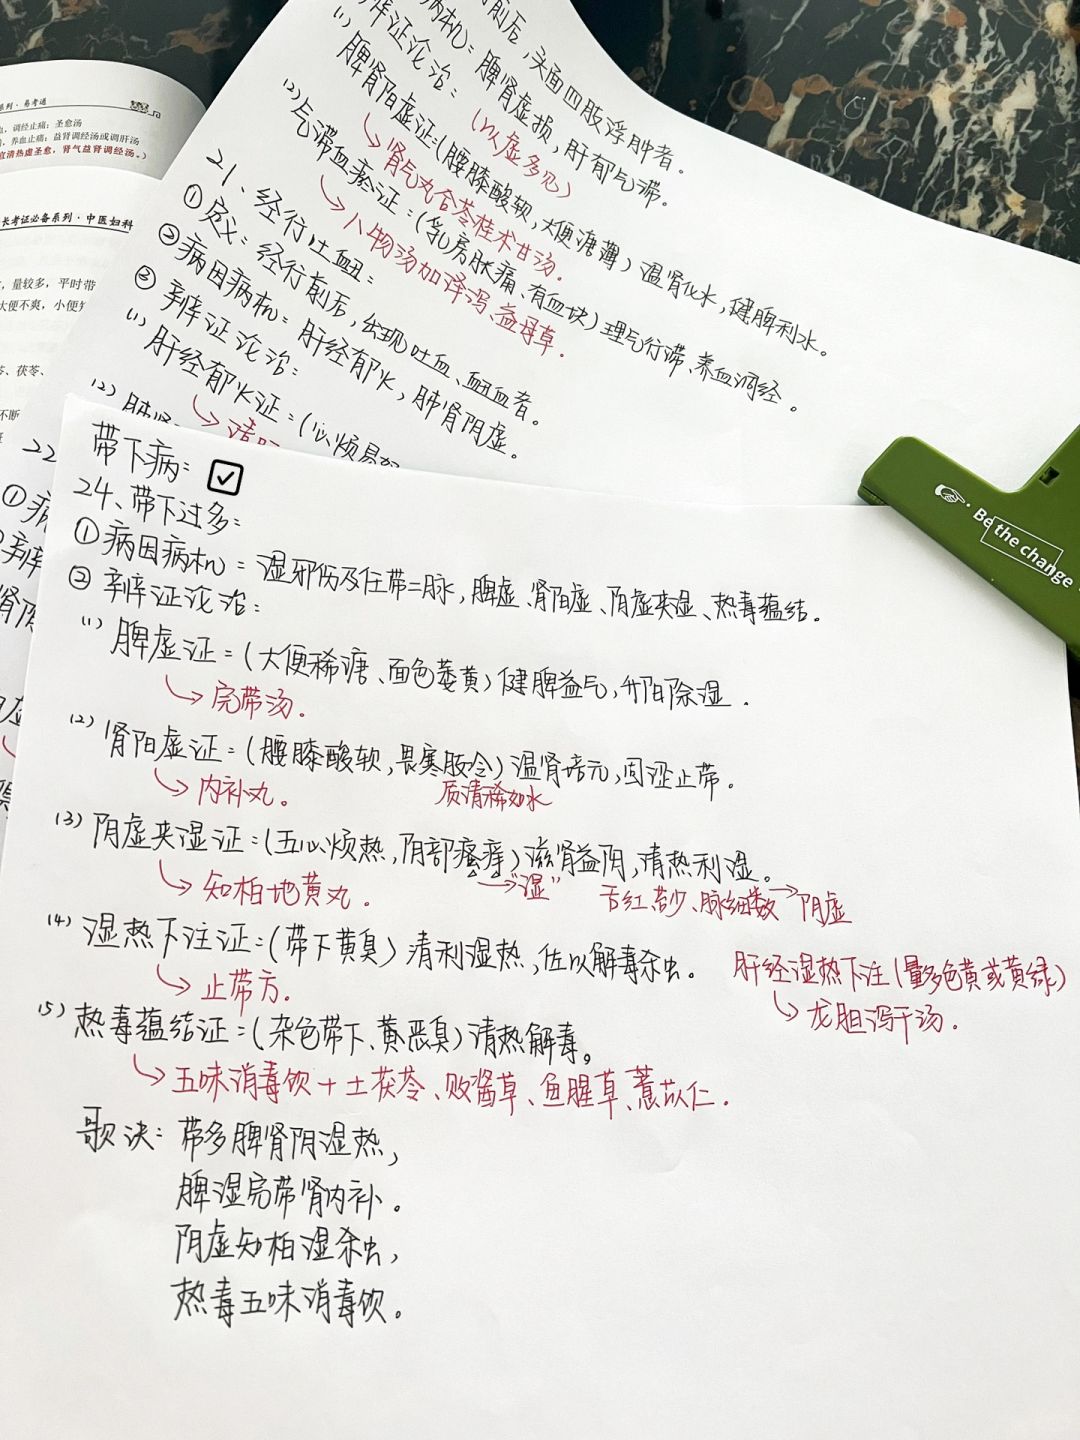 系列·易考通
调经止痛：圣愈汤
养血止痛：益肾调经汤或调肝汤
宜清热虚圣愈，肾气益肾调经汤。）
长考证必备系列·中医妇科
，量较多，平时带
大便不爽，小便短
、茯苓、
不断
前后，头面四肢浮肿者。
病机：脾肾虚损，肝郁气滞。
辨证论治：（以虚多见）
(1) 脾肾阳虚证：（腰膝酸软，大便溏薄）温肾化水，健脾利水。
→肾气丸合苓桂术甘汤。
(2) 气滞血瘀证：（乳房胀痛、有血块）理气行滞、养血调经。
→八物汤加泽泻、益母草。
21、经行吐衄：
①定义：经行前后，出现吐血、衄血者。
②病因病机：肝经郁火，肺肾阴虚。
③辨证论治：
(1) 肝经郁火证：（心烦易怒
→清
(2) 肺肾
22
①病
②辨
带下病：☑
24、带下过多：
①病因病机：湿邪伤及任带二脉，脾虚、肾阳虚、阴虚夹湿、热毒蕴结。
②辨证论治：
(1) 脾虚证：（大便稀溏、面色萎黄）健脾益气，升阳除湿。
→完带汤。
(2) 肾阳虚证：（腰膝酸软，畏寒肢冷）温肾培元，固涩止带。
→内补丸。 质清稀如水
(3) 阴虚夹湿证：（五心烦热，阴部瘙痒）滋肾益阴，清热利湿。
→知柏地黄丸。 →“湿” 舌红苔少、脉细数→阴虚
(4) 湿热下注证：（带下黄臭）清利湿热，佐以解毒杀虫。 肝经湿热下注（量多色黄或黄绿）
→止带方。 →龙胆泻干汤。
(5) 热毒蕴结证：（杂色带下、黄恶臭）清热解毒。
→五味消毒饮+土茯苓、败酱草、鱼腥草、薏苡仁。
歌诀：带多脾肾阴湿热，
脾湿完带肾内补。
阴虚知柏湿杀虫，
热毒五味消毒饮。
Be the change